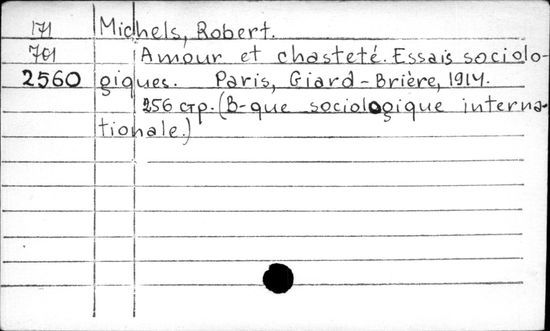 171 Michels, Robert.
701 Amour et chasteté. Essais sociolo-
2560 giques. Paris, Giard-Brière, 1914.
256 стр. (B-que sociologique interna-
tionale.)